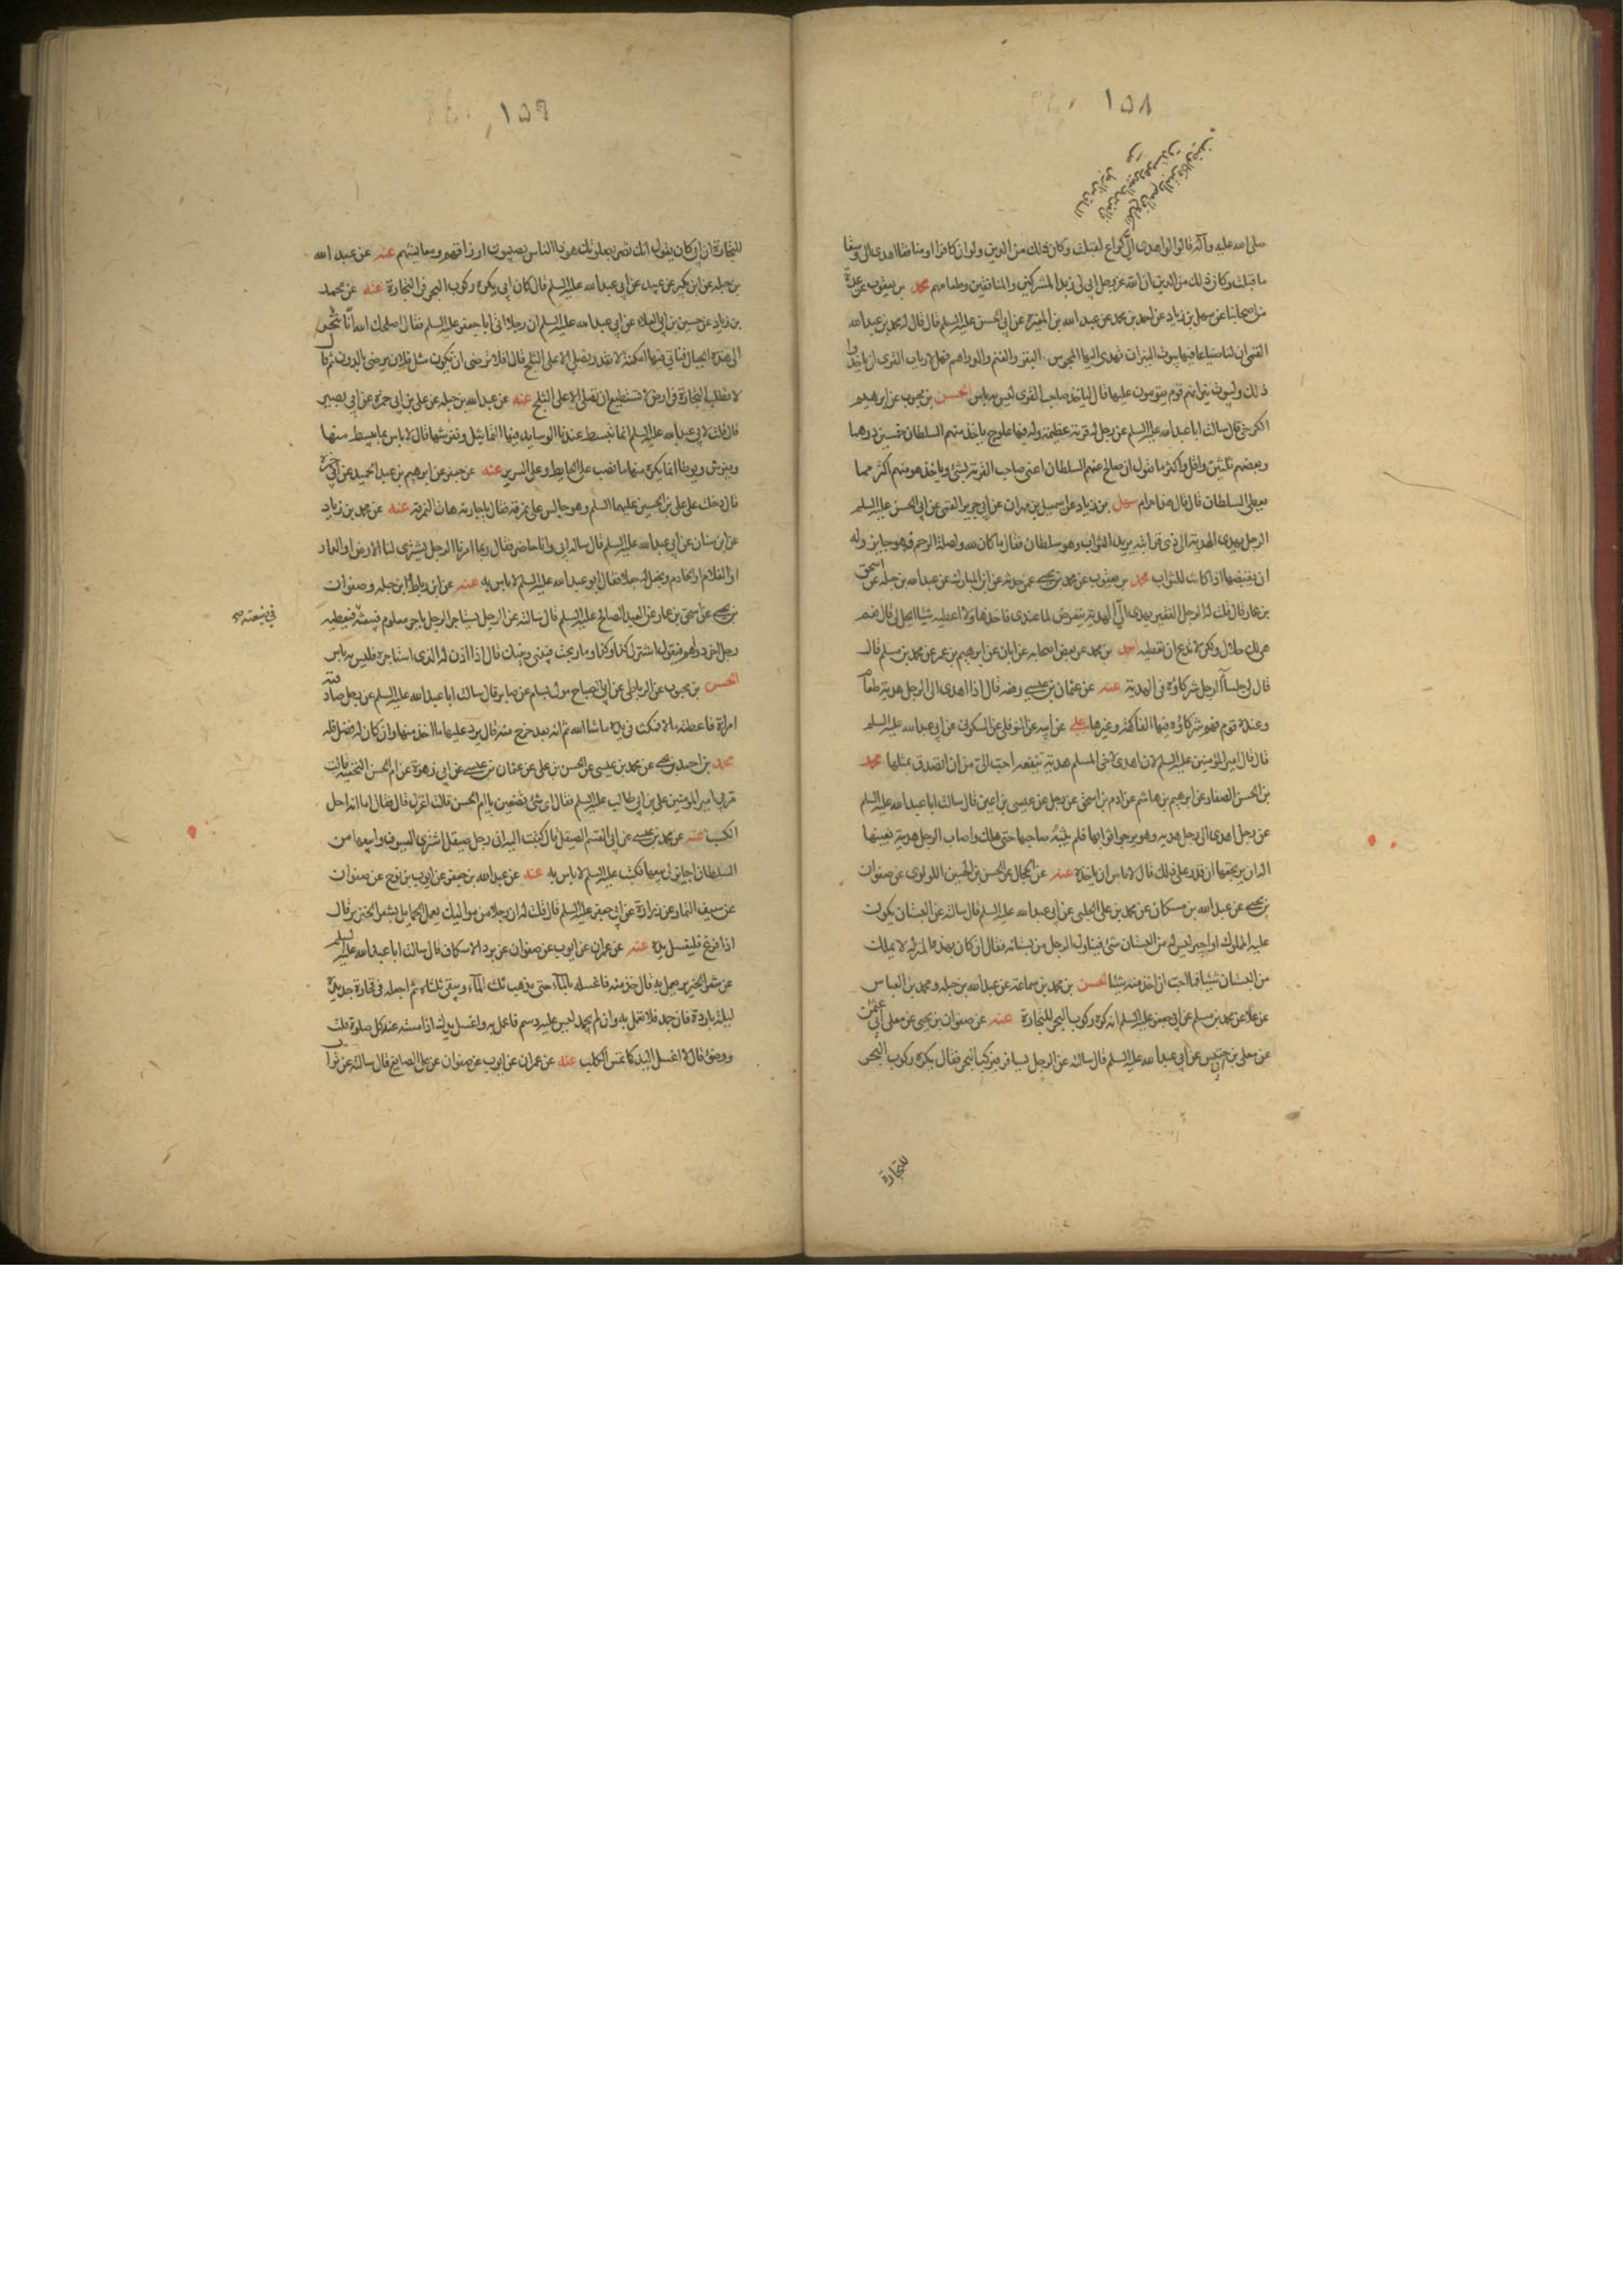 ١٥٨
صلى الله عليه وآله قالوا لو اهدى الىّ كراع لقبلت وكان ذلك من الدين ولو ان كافرا او منافقا اهدى الى وسقا
ما قبلت وكان ذلك من الدين ان الله عز وجل ابى لى زبد المشركين والمنافقين وطعامهم محمد بن يعقوب عن عدة
من اصحابنا عن سهل بن زياد عن احمد بن محمد عن عبد الله بن المغيرة عن ابى الحسن عليه السلم قال قال له محمد بن عبد الله
القمى ان لنا ضياعا فيها بيوت النيران تهدى اليها المجوس البقر والغنم والدراهم فهل لارباب القرى ان ياخذوا
ذلك ولبيوت نيرانهم قوم يقومون عليها قال لياخذه صاحب القرى ليس به باس الحسن بن محبوب عن ابرهيم
الكرخى قال سالت ابا عبد الله عليه السلم عن رجل له قرية عظيمة وله فيها علوج ياخذ منهم السلطان خمسين درهما
وبعضهم ثلثين واقل واكثر ما تقول ان صالح عنهم السلطان اعنى صاحب القرية بشئ وياخذ هو منهم اكثر مما
يعطى السلطان قال قال هذا حرام سهل بن زياد عن اسمعيل بن مهران عن ابى جرير القمى عن ابى الحسن عليه السلم
الرجل يهدى الهدية الى ذى قرابته يريد الثواب وهو سلطان فقال ما كان لله ولصلة الرحم فهو جايز وله
ان يقبضها اذا كانت للثواب محمد بن يعقوب عن محمد بن يحيى عمن حدثه عن ابن المبارك عن عبد الله بن جبله عن اسحق
بن عمار قال قلت له الرجل الفقير يهدى الىّ الهدية يتعرض لما عندى فاخذها ولا اعطيه شيئا ايحل لى قال نعم
هى لك حلال ولكن لا تدع ان تعطيه احمد بن محمد عن بعض اصحابه عن ابان عن ابرهيم بن عمر عن محمد بن مسلم قال
قال لى جلساء الرجل شركاؤه فى الهدية عنه عن عثمان بن عيسى رفعه قال اذا اهدى الى الرجل هدية طعام
وعنده قوم فهم شركاؤه فيها الفاكهة وغيرها على عن ابيه عن النوفلى عن السكونى عن ابى عبد الله عليه السلم
قال قال امير المؤمنين عليه السلم لان اهدى لاخى المسلم هدية تنفعه احب الىّ من ان اتصدق بمثلها محمد
بن الحسن الصفار عن ابرهيم بن هاشم عن ادم بن اسحق عن رجل عن عيسى بن اعين قال سالت ابا عبد الله عليه السلم
عن رجل اهدى الى رجل هدية وهو يرجو ثوابها فلم يثبه صاحبها حتى هلك واصاب الرجل هديته بعينها
اله ان يرتجعها ان قدر على ذلك قال لا باس ان ياخذه عنه عن الحجال عن الحسن بن الحسين اللولوى عن صفوان
بن يحيى عن عبد الله بن مسكان عن محمد بن على الحلبى عن ابى عبد الله عليه السلم قال سالته عن البستان يكون
عليه المملوك او اجير ليس له من البستان شئ فيتناول الرجل من بستانه فقال ان كان بهذه المنزله لا يملك
من البستان شيئا فما احب ان اخذ منه شيئا الحسن بن محمد بن سماعة عن عبد الله بن جبله ومحمد بن العباس
عن علا عن محمد بن مسلم عن ابى جعفر عليه السلم انه كره ركوب البحر للتجارة عنه عن صفوان بن يحيى عن معلى ابى عثمن
عن معلى بن خنيس عن ابى عبد الله عليه السلم قال سالته عن الرجل يسافر فيركب البحر فقال يكره ركوب البحر
للتجارة
١٥٩
للتجارة ان ابى كان يقول انك تضر بصلوتك هوذا الناس يصيبون ارزاقهم ومعايشهم عنه عن عبد الله
بن جبله عن ابن بكير عن عبيد عن ابى عبد الله عليه السلم قال كان ابى يكره ركوب البحر فى التجارة عنه عن محمد
بن زياد عن حسين بن ابى العلاء عن ابى عبد الله عليه السلم ان رجلا اتى ابا جعفر عليه السلم فقال اصلحك الله انا نتجر
الى هذه الجبال فناتى منها امكنة لا نقدر نصلى الا على الثلج قال افلا ترضى ان تكون مثل فلان يرضى بالدون ثم قال
لا تطلب التجارة فى ارض لا تستطيع ان تصلى الا على الثلج عنه عن عبد الله بن جبله عن على بن ابى حمزة عن ابى بصير
قال قلت لابى عبد الله عليه السلم انما تبسط عندنا الوسايد فيها التماثيل ونفرشها قال لا باس بما يبسط منها
ويفرش ويوطا انما يكره منها ما نصب على الحايط وعلى السرير عنه عن جعفر عن ابرهيم بن عبد الحميد عن ابى حمزه
قال دخلت على على بن الحسين عليهما السلم وهو جالس على نمرقة فقال يا جارية هات النمرقة عنه عن محمد بن زياد
عن ابن سنان عن ابى عبد الله عليه السلم قال ساله ابى وانا حاضر فقال ربما امرنا الرجل يشترى لنا الارض او الدار
او الغلام او الخادم ويجعل له جعلا فقال ابو عبد الله عليه السلم لا باس به عنه عن ابن رباط وابن جبله وصفوان
بن يحيى عن اسحق بن عمار عن العبد الصالح عليه السلم قال سالته عن الرجل يستاجر الرجل باجر معلوم فيبعثه فيعطيه
فى ضيعته
رجل اخر دراهم فيقول اشتر لى كذا وكذا وما ربحت فبينى وبينك قال اذا اذن له الذى استاجره فليس به باس
الحسن بن محبوب عن الرباطى عن ابى الصباح مولى بسام عن صابر قال سالت ابا عبد الله عليه السلم عن رجل صادقته
امراة فاعطته مالا فمكث فى يده ما شاء الله ثم انه بعد خرج منه قال يرد عليها ما اخذ منها وان كان له فضل فله
محمد بن احمد بن يحيى عن محمد بن عيسى عن الحسن بن على عن عثمان بن عيسى عن ابى زهرة عن ام الحسن النخعية قالت
مر بى امير المومنين على بن ابى طالب عليه السلم فقال اى شئ تصنعين يا ام الحسن قالت اغزل قال فقال اما انه احل
الكسب عنه عن محمد بن عيسى عن ابى القسم الصيقل قال كتبت اليه انى رجل صيقل اشترى السيوف وابيعها من
السلطان اجايز لى بيعها فكتب عليه السلم لا باس به عنه عن عبد الله بن جعفر عن ايوب بن نوح عن صفوان
عن سيف التمار عن زرارة عن ابى جعفر عليه السلم قال قلت له ان رجلا من مواليك يعمل الحمايل بشعر الخنزير قال
اذا فرغ فليغسل يده عنه عن عمران عن ايوب عن صفوان عن برد الاسكاف قال سالت ابا عبد الله عليه السلم
عن شعر الخنزير يعمل به قال خذ منه فاغسله بالماء حتى يذهب ثلث الماء ويبقى ثلثاه ثم اجعله فى فخارة جديدة
ليلة باردة فان جمد فلا تعمل به وان لم يجمد ليس عليه دسم فاعمل به واغسل يدك اذا مسسته عند كل صلوة قلت
ووضوء قال لا اغسل اليد كما تمس الكلب عنه عن عمران عن ايوب عن صفوان عن على الصايغ قال سالته عن تراب